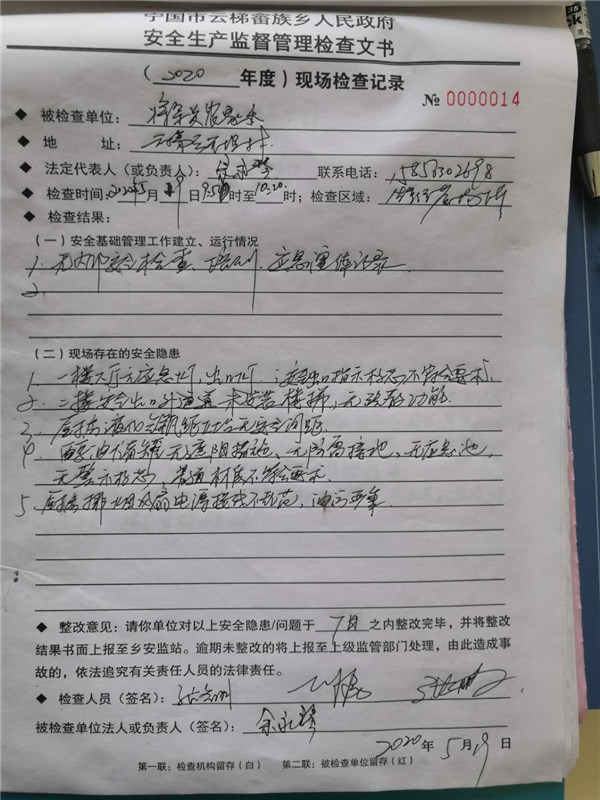 宁国市云梯畲族乡人民政府
安全生产监督管理检查文书
（2020 年度）现场检查记录
№ 0000014
◆ 被检查单位： 农家乐
◆ 地 址：
◆ 法定代表人（或负责人）：余永琴 联系电话：
◆ 检查时间：2020年5月19日9:50时至10:20时；检查区域：
◆ 检查结果：
（一）安全基础管理工作建立、运行情况
1. 无内部安全检查、培训、应急演练记录
2.
（二）现场存在的安全隐患
1. 一楼大厅无应急灯，出口灯，安全出口指示标志不符合要求
2. 二楼安全出口外通道未安装楼梯，无疏散功能
3. 厨房液化气瓶与灶台无安全间距
4. 醇油储罐无遮阳措施、无防雷接地、无应急池，
无警示标志，管道材质不符合要求
5. 厨房排烟风扇电源接线不规范，油污严重
◆ 整改意见：请你单位对以上安全隐患/问题于 7日 之内整改完毕，并将整改
结果书面上报至乡安监站。逾期未整改的将上报至上级监管部门处理，由此造成事
故的，依法追究有关责任人员的法律责任。
◆ 检查人员（签名）：
被检查单位法人或负责人（签名）：余永琴
2020年5月19日
第一联：检查机构留存（白） 第二联：被检查单位留存（红）